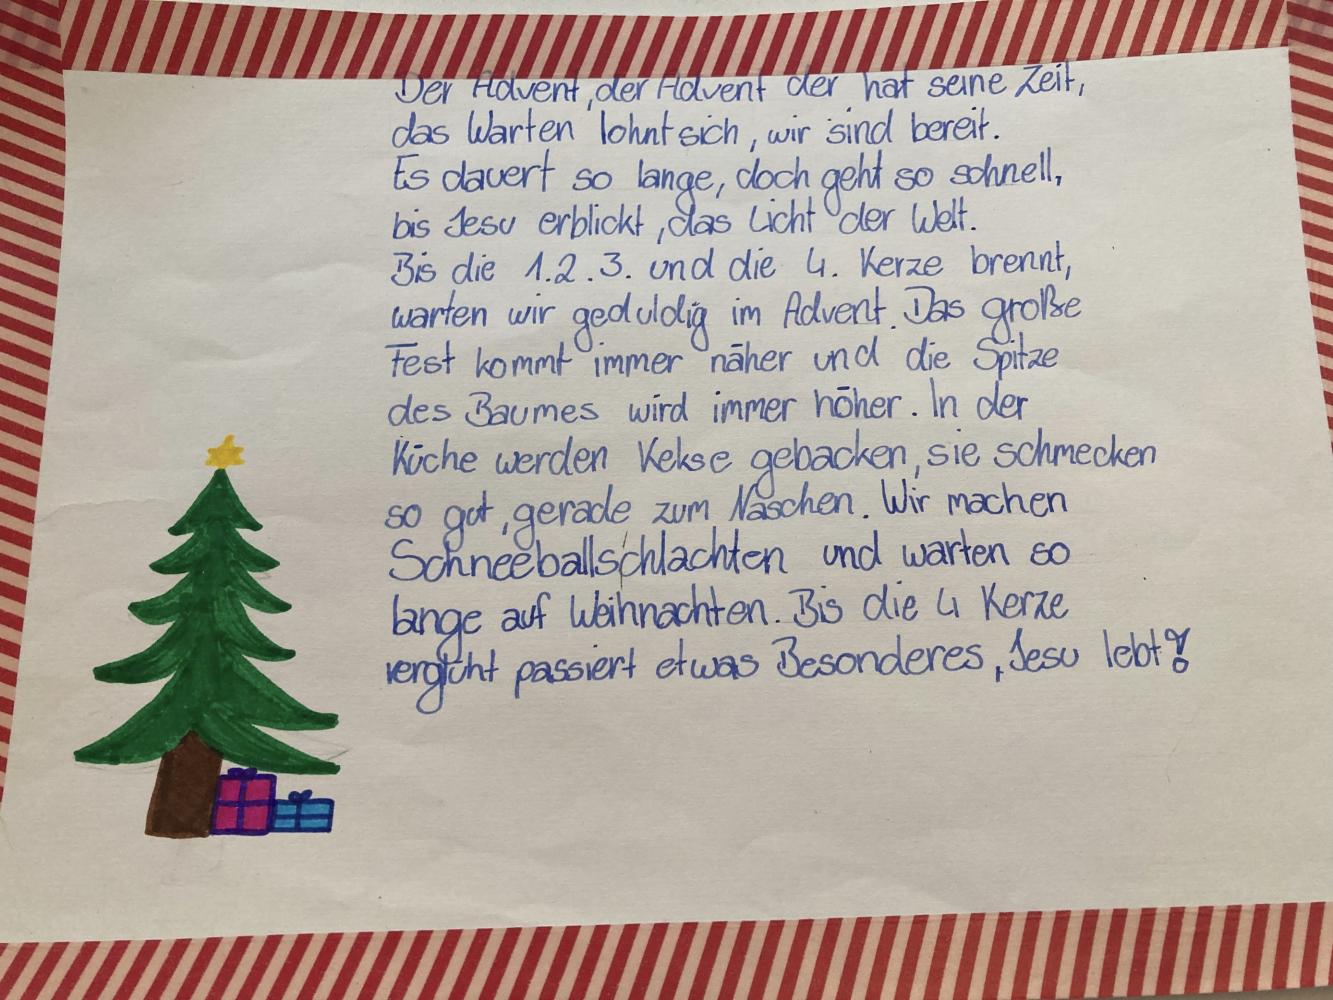 Der Advent, der Advent der hat seine Zeit,
das Warten lohnt sich, wir sind bereit.
Es dauert so lange, doch geht so schnell,
bis Jesu erblickt, das Licht der Welt.
Bis die 1.2.3. und die 4. Kerze brennt,
warten wir geduldig im Advent. Das große
Fest kommt immer näher und die Spitze
des Baumes wird immer höher. In der
Küche werden Kekse gebacken, sie schmecken
so gut, gerade zum Naschen. Wir machen
Schneeballschlachten und warten so
lange auf Weihnachten. Bis die 4 Kerze
verglüht passiert etwas Besonderes, Jesu lebt!